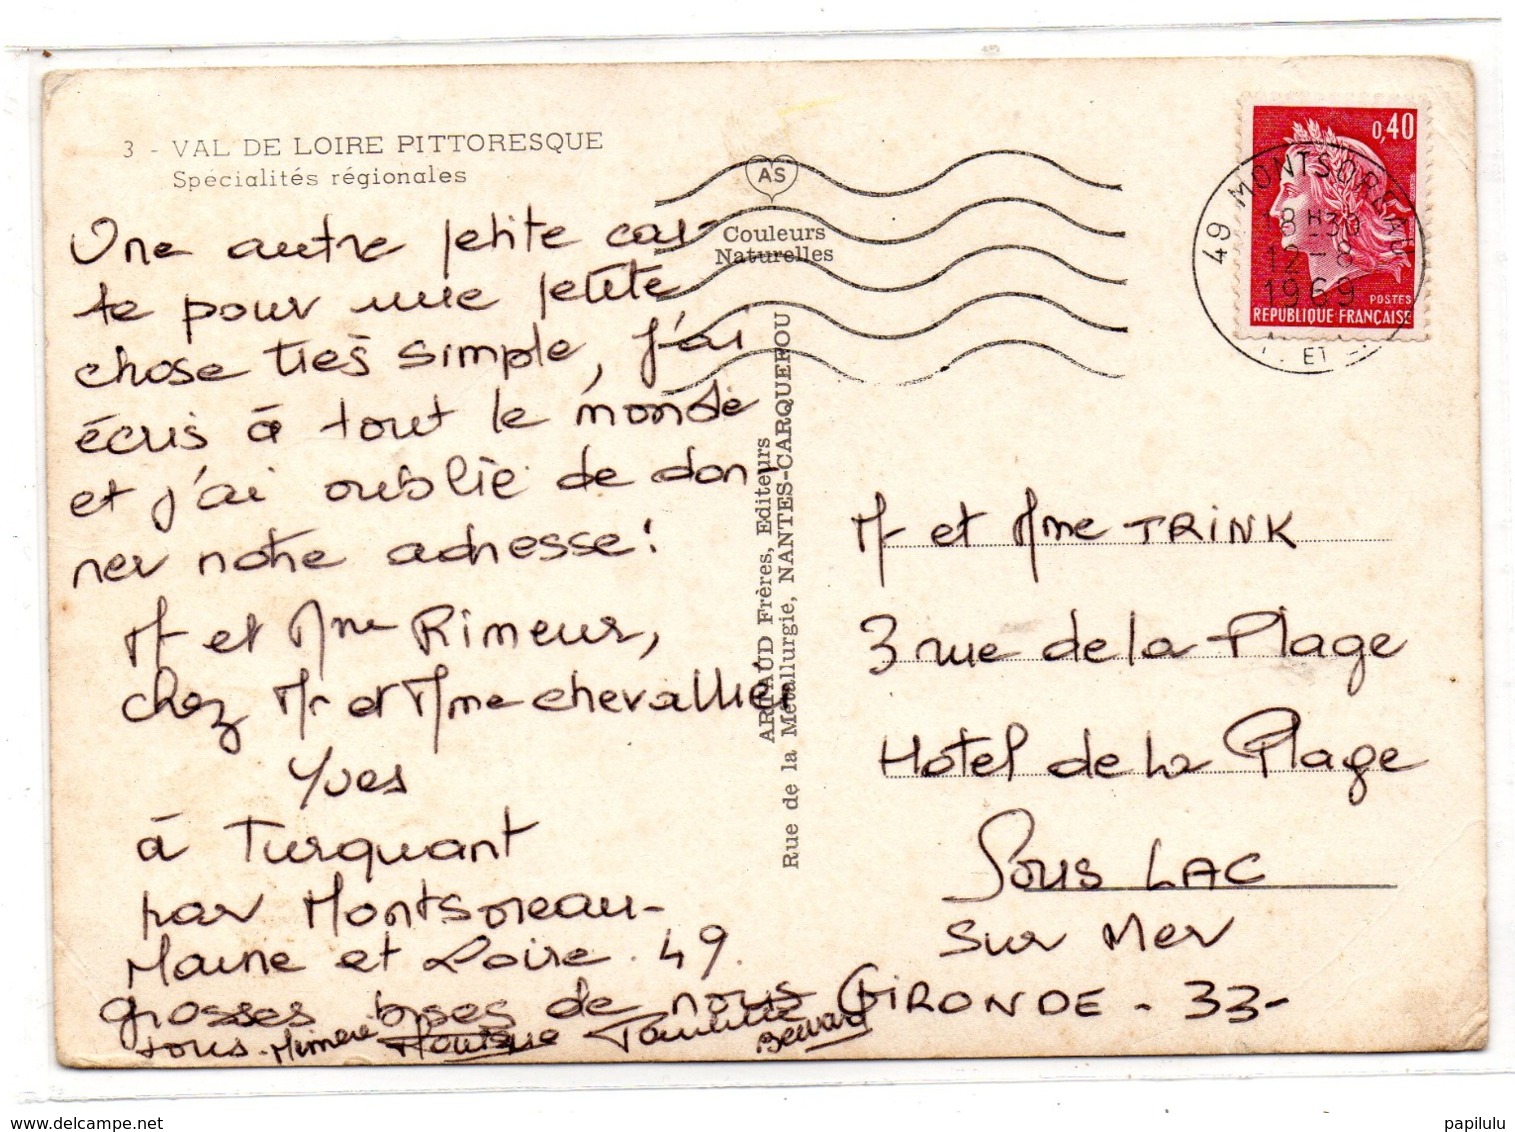 3 - VAL DE LOIRE PITTORESQUE
Spécialités régionales
Une autre petite car-
te pour une petite
chose très simple, j'ai
écris à tout le monde
et j'ai oublié de don-
ner notre adresse!
M et Mme Rimeur,
chez Mr et Mme chevallier
Yves
à Turquant
par Montsoreau-
Maine et Loire. 49.
grosses bises de nous
tous. Mimere Monique Paulette
Bernard
AS
Couleurs
Naturelles
ARTAUD Frères, Editeurs
Rue de la Métallurgie, NANTES-CARQUEFOU
0,40
POSTES
REPUBLIQUE FRANÇAISE
49 MONTSOREAU
18H30
12-8
1969
ET
M et Mme TRINK
3 rue de la Plage
Hôtel de la Plage
Sous LAC
sur Mer
GIRONDE - 33-
www.delcampe.net
papilulu